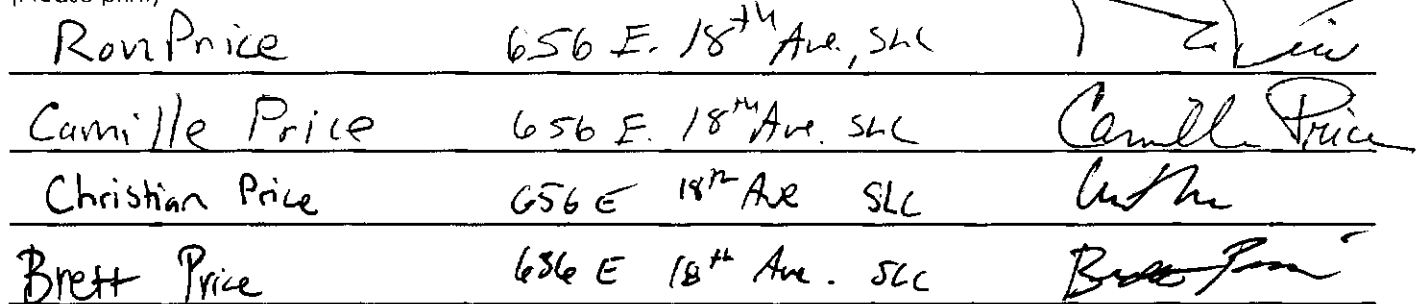 (Please print)
Ron Price 656 E. 18th Ave., SLC
Camille Price 656 E. 18th Ave. SLC Camille Price
Christian Price 656 E 18th Ave SLC
Brett Price 656 E 18th Ave. SLC Brett Price